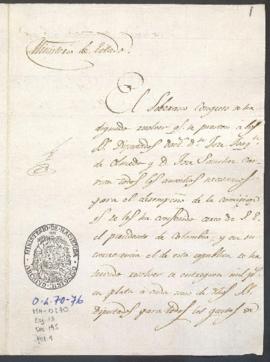 1
Ministerio de Estado
El Soberano Congreso se ha
dignado resolver q.e se presten a los
SS. Diputados Doct.r D.n Jose Joaq.n
de Olmedo y D. Jose Sanchez Ca-
rrion todos los auxilios necesarios
para el desempeño de la comision q.e
se les ha confiado cerca de S. E.
el presidente de Colombia, y en su
consecuencia el de esta republica ha
tenido resolver se entreguen mil p.s
en plata á cada uno de dhos SS.
diputados para todos los gastos
MINISTERIO DE HACIENDA
O.L.70-76